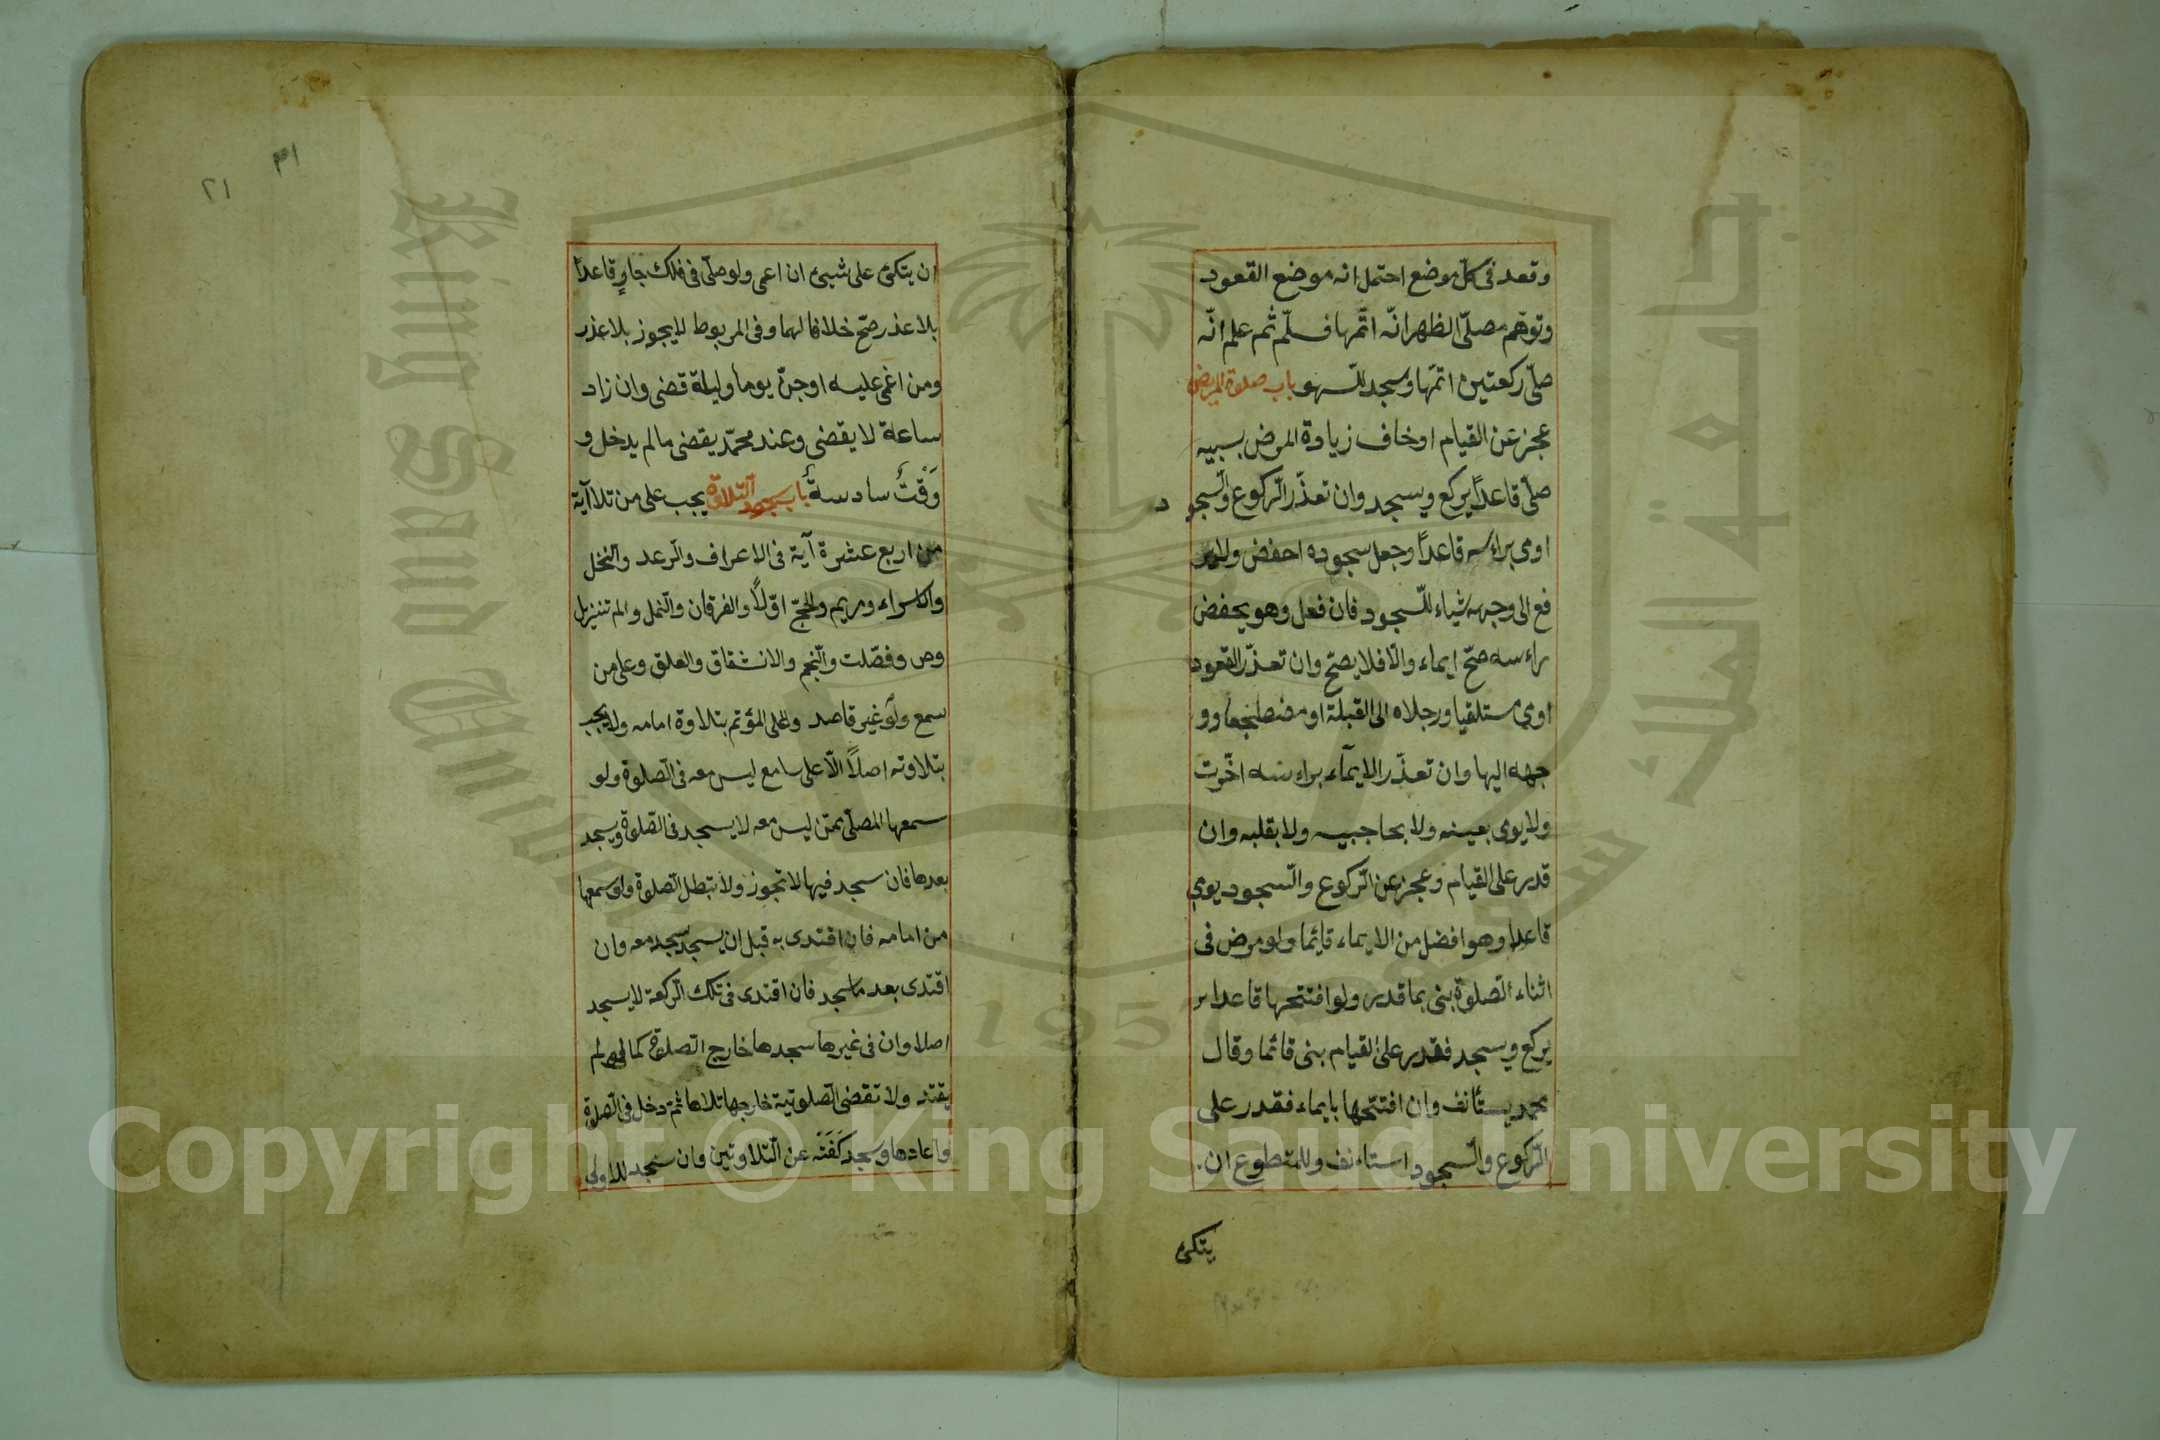 وقعد فى كلّ موضع احتمل انه موضع القعود
وتوهّم مصلّى الظهر انّه اتّمها فسلّم ثم علم انّه
صلّى ركعتين اتمّها وسجد للسهو باب صلوة المريض
عجز عن القيام او خاف زيادة المرض بسببه
صلّى قاعداً يركع ويسجد وان تعذّر الرّكوع والسّجود
اومى براءسه قاعداً وجعل سجوده اخفض ولا ير
فع الى وجهه شياء للسّجود فان فعل وهو يخفض
راءسه صحّ ايماء والّا فلا يصحّ وان تعذّر القعود
اومى مستلقيا ورجلاه الى القبلة او مضطجعا وو
جهه اليها وان تعذّر الايماء براءسه اخّرت
ولا يومى بعينه ولا بحاجبيه ولا بقلبه وان
قدر على القيام وعجز عن الرّكوع والسّجود يومى
قاعدا وهو افضل من الايماء قايما ولو مرض فى
اثناء الصّلوة بنى بما قدر ولو افتتحها قاعدا ير
يركع ويسجد فقدر على القيام بنى قائما وقال
محمد يستأنف وان افتتحها بايماء فقدر على
الرّكوع والسّجود استاءنف وللمتطوع ان
يتكئ
٣١
٢١
ان يتكئ على شيئ ان اعى ولو صلّى فى فلك جارٍ قاعداً
بلا عذر صحّ خلافا لهما وفى المربوط لا يجوز بلا عذر
ومن اغمى عليه او جنّ يوما وليلة قضى وان زاد
ساعة لا يقضى وعند محمّد يقضى ما لم يدخل و
وَقْتٌ سادسةٌ باب سجود التلاوة يجب على من تلا آية
من اربع عشرة آية فى الاعراف والرّعد والنحل
والاسراء ومريم والحجّ اوّلاً والفرقان والنّمل والم تنزيل
وص وفصّلت والنّجم والانشقاق والعلق وعلى من
سمع ولو غير قاصد وعلى المؤتم بتلاوة امامه ولا يجب
بتلاوته اصلاً الّا على سامع ليس معه فى الصّلوة ولو
سمعها المصلّى ممّن ليس معه لا يسجد فى الصّلوة ويسجد
بعدها فان سجد فيها لا تجوز ولا تبطل الصّلوة ولو سمعها
من امامه فان اقتدى به قبل ان يسجد سجد معه وان
اقتدى بعد ما سجد فان اقتدى فى تلك الرّكعة لا يسجد
اصلا وان فى غيرها سجدها خارج الصّلوة كما لو لم
يقتد ولا تقضى الصّلوتية خارجها تلاها ثمّ دخل فى الصّلوة
واعادها وسجد كَفَتْه عن التّلاوتين وان سجد للاولى
King Saud University
جامعة الملك سعود
1957
Copyright © King Saud University